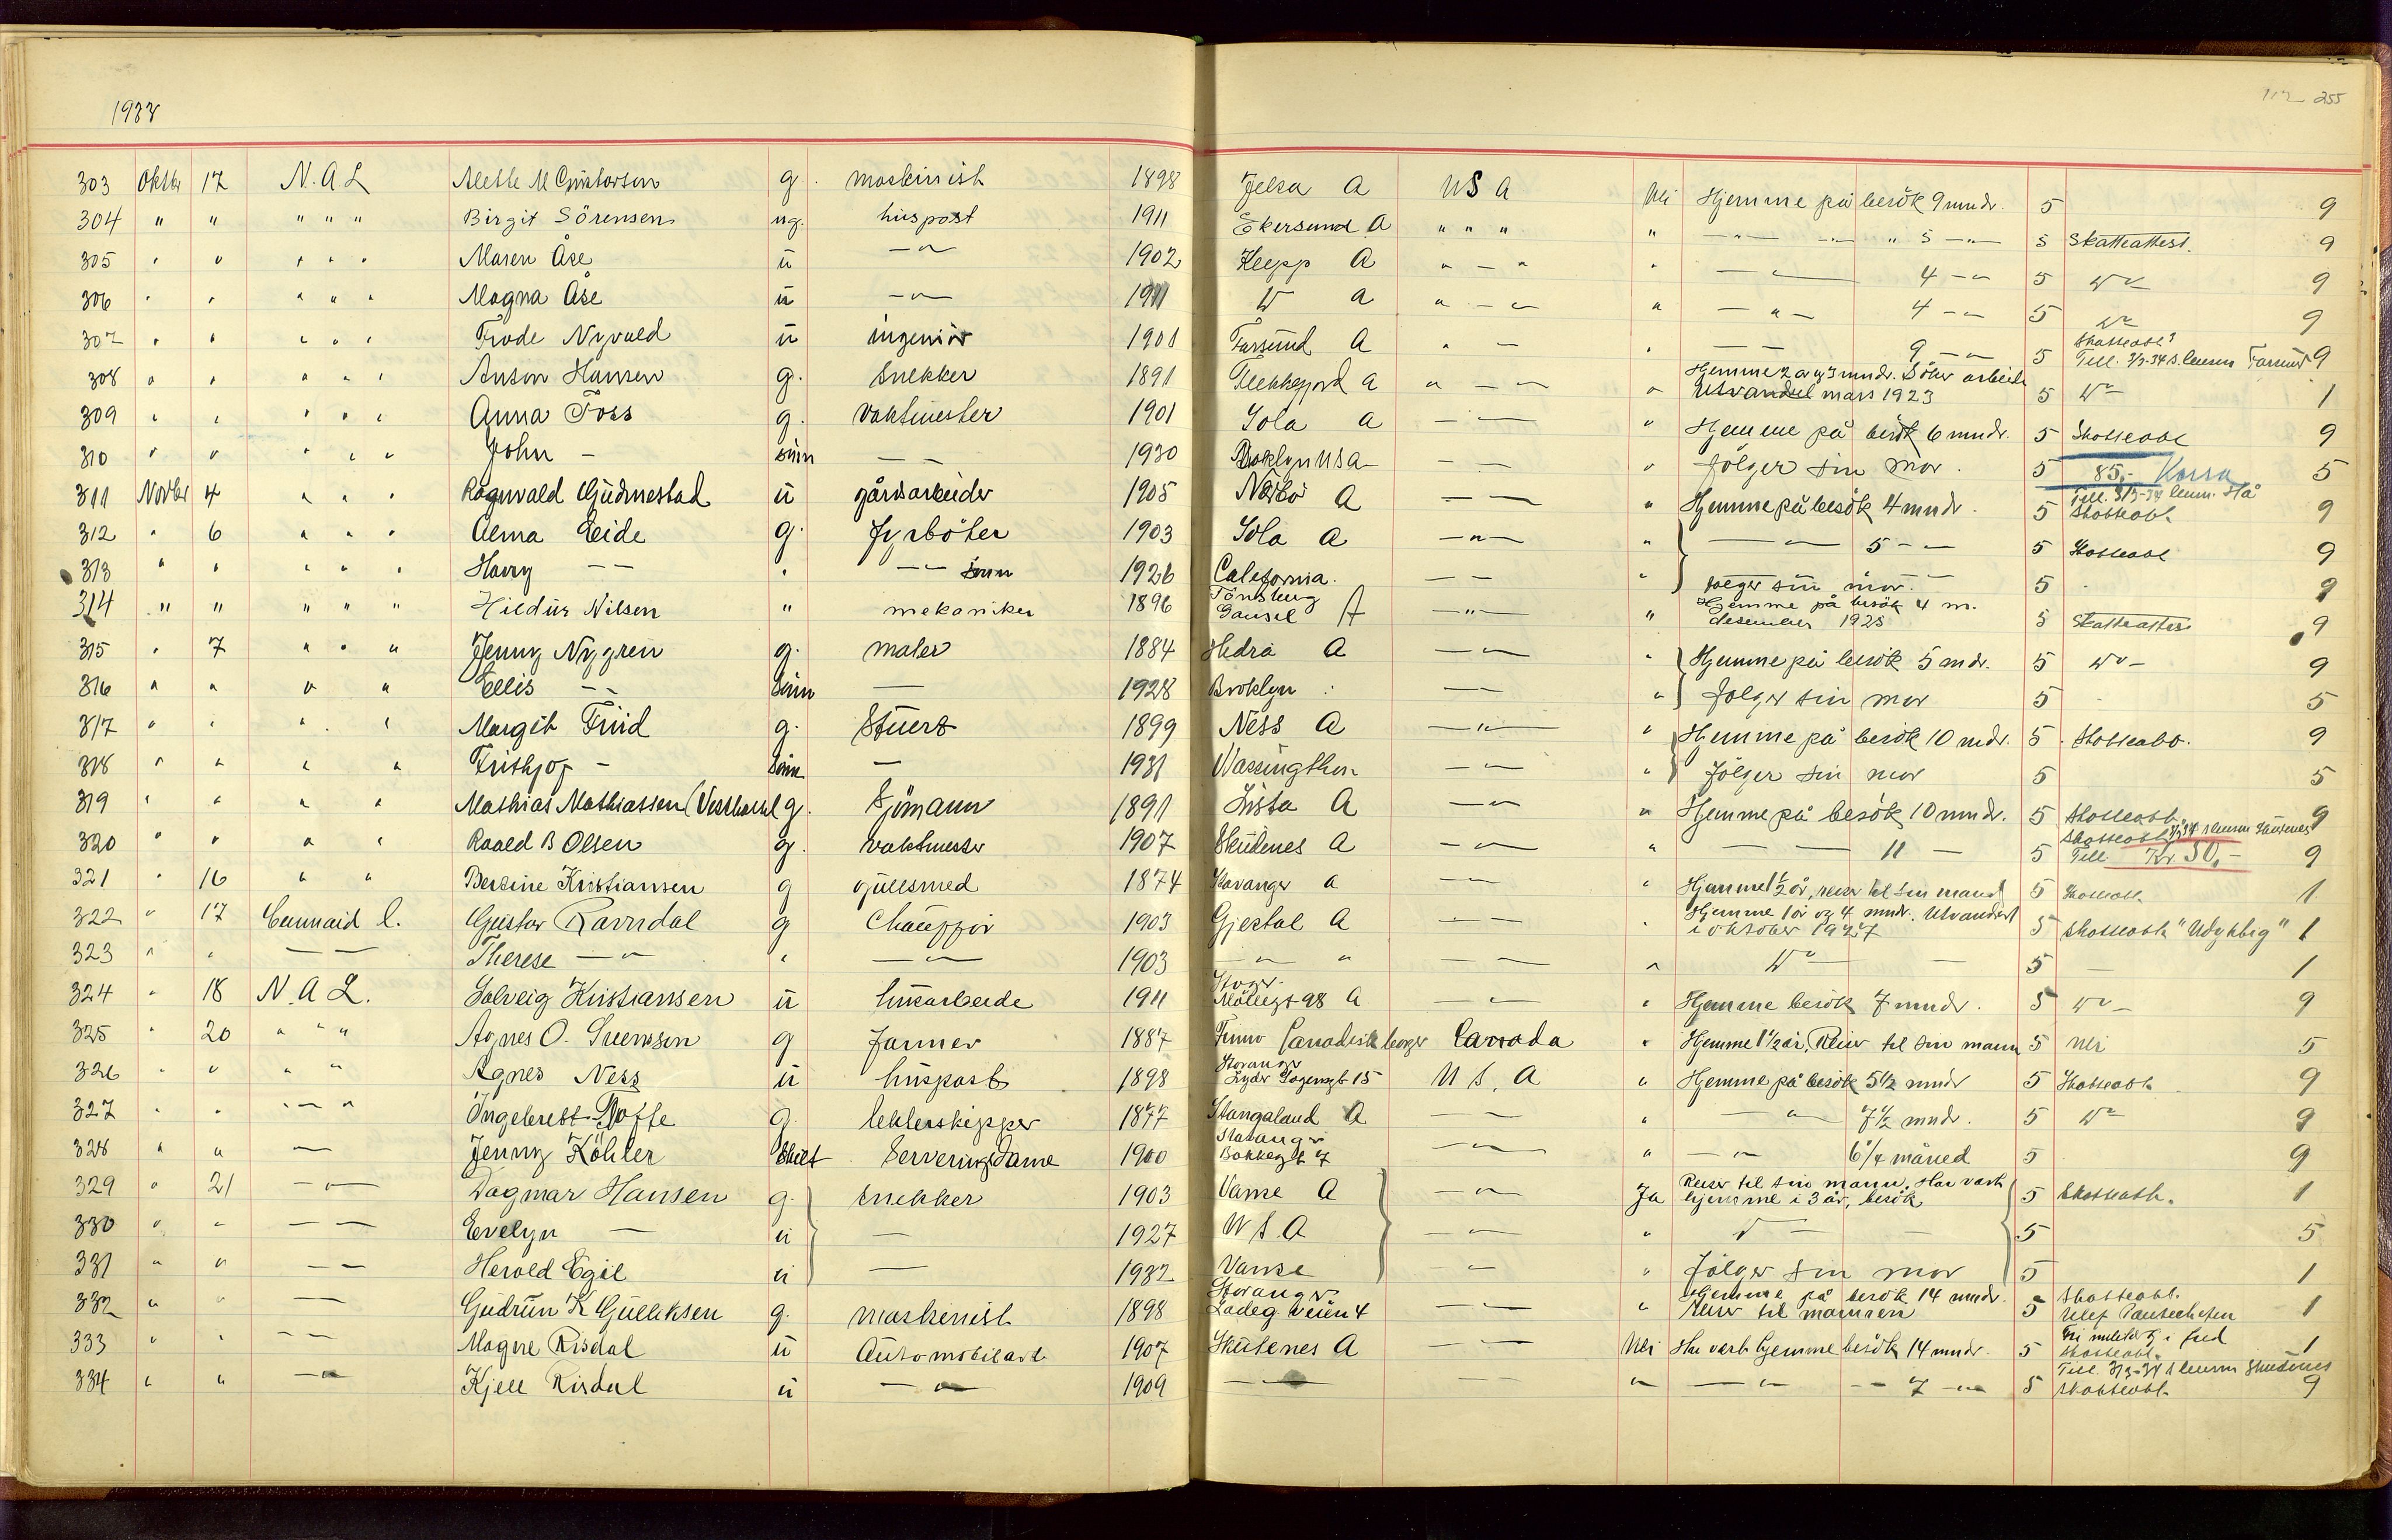 1933
255
303 Oktbr 17 N. A L g. maskinist 1898 Jelsa A U S A Nei Hjemme på besök 9 mndr. 5 9
304 " " " " " Birgit Sörensen ug. huspost 1911 Ekersund A " " " " " 5 5 Skatteattest. 9
305 " " " " " Maren Åse u 1902 Klepp A " 4 5 9
306 " " " " " Magna Åse u 1911 A " 4 5 9
307 " " " " " Frode Nyvold u ingeniör 1901 Farsund A " 9 5 Till. 3/3-34 s. lensm Farsund 9
308 " " " " " Anton Hansen g. Snekker 1891 Flekkefjord A " Hjemme 2 år og 3 mndr. Söker arbeide
Utvandret mars 1923 5 1
309 " " " " " Anna Foss g. Vaktmester 1901 Sola A " Hjemme på besök 6 mndr. 5 Skatteatt 9
310 " " " " " John - sönn 1930 Brooklyn USA " fölger sin mor. 5 85,- Kassa 5
311 Novbr 4 " " " Ragnvald Gudmestad u gårdsarbeider 1905 Nærbö A " Hjemme på besök 4 mndr. 5 Till. 3/3-34 lensm. Hå
Skatteatt. 9
312 " 6 " " " Alma Eide g. Fyrböter 1903 Sola A " 5 5 Skatteatt 9
313 " " " " " Harry sönn 1926 California. " fölger sin mor. 5 9
314 " " " " " Hildur Nilsen " mekaniker 1896 Tönsberg
Gausel A " Hjemme på besök 4 m.
desember 1928 5 Skatteattest 9
315 " 7 " " " Jenny Nygren g. maler 1884 Hidra A " Hjemme på besök 5 mdr. 5 9
316 " " " " Ellis sönn 1928 Broklyn " fölger sin mor 5 5
317 " " " " Margit g. Stuert 1899 Ness A " Hjemme på besök 10 mdr. 5 Skatteatt. 9
318 " " " " Frithjof - sönn 1931 Wassingthon " fölger sin mor 5 5
319 " " " " Mathias Mathiassen g. Sjömann 1891 Lista A " Hjemme på besök 10 mndr. 5 Skatteatt. 9
320 " " " " Roald B Olsen g. vaktmester 1907 Skudenes A " 11 5 Till Kr. 50,- 9
321 " 16 " " Bertine Kristiansen g gullsmed 1874 Stavanger A " Hjemme 1 1/2 år, reiser til sin mand 5 Skatteatt. 1
322 " 17 Cunnard L. Gustav Ravndal g Chaufför 1903 Gjestal A " Hjemme 1 år og 4 mndr. Utvandert
i oktober 1927 5 Skatteatt. 1
323 " " Therese " 1903 " " " 5 1
324 " 18 N. A L. Solveig Kristiansen u husarbeide 1911 98 A " Hjemme besök 7 mndr. 5 9
325 " 20 " " " Agnes O. Svensen g Farmer 1887 Canadisk borger Canada " Hjemme 1 1/2 år. Reiser til sin mann 5 nei 5
326 " " " " Agnes Ness u huspost 1898 Stavanger
15 U S. A " Hjemme på besök 5 1/2 mndr 5 Skatteatt. 9
327 " " " " g. lekterskipper 1877 Stangaland A " 7 1/2 mndr. 5 9
328 " " Jenny Köhler Skilt Serveringsdame 1900 Stavanger
Bakkegt 7 " 6 1/4 måned 5 9
329 " 21 Dagmar Hansen g. snekker 1903 Vanse A Ja Reiser til sin mann. Har vært
hjemme i 3 år, besök 5 Skatteatt. 1
330 " Evelyn u 1927 U S. A " 5 5
331 " " Herold Egil u 1932 Vanse " Fölger sin mor 5 1
332 " " Gudrun K Gulliksen g. maskinist 1898 Stavanger
Ladeg. veien 4 " Hjemme på besök 14 mndr.
Reiser til mannen 5 Skatteatt. 1
333 " " Magne Risdal u Automobilarb 1907 Skudenes A Nei Har vært hjemme besök 14 mndr. 5 Skatteatt. 1
334 " " Kjell Risdal u 1909 " 7 5 Till. 3/3-34 s lensm Skudenes
Skatteatt. 9